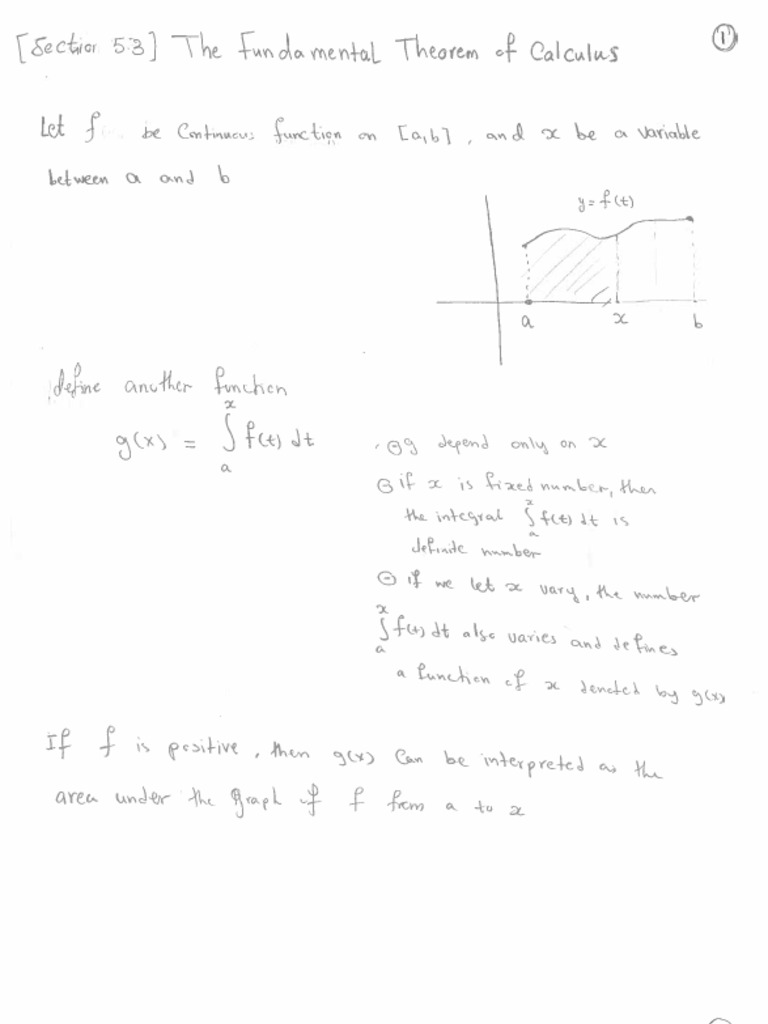 [Section 5.3] The Fundamental Theorem of Calculus
①
Let f be Continuous function on [a,b], and x be a variable
between a and b
y = f(t)
a x b
define another function
g(x) = ∫ₐˣ f(t) dt
⊙ g depend only on x
⊙ if x is fixed number, then
the integral ∫ₐˣ f(t) dt is
definite number
⊙ if we let x vary, the number
∫ₐˣ f(t) dt also varies and defines
a function of x denoted by g(x)
If f is positive, then g(x) Can be interpreted as the
area under the Graph of f from a to x